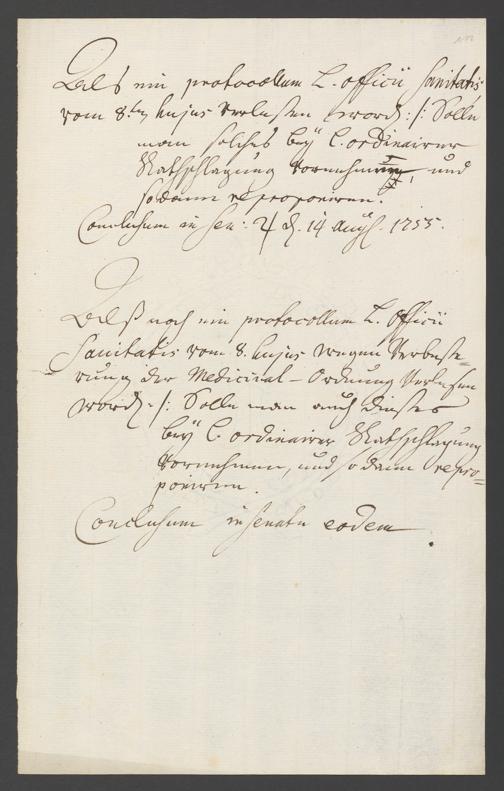 Als ein protocollum L. officii Sanitatis
vom 8.ten hujus verlesen word: /: Solle
man solches beÿ L. ordinairer
Rathschlagung vornehmen, und
sodann reproponiren.
Conclusum in Sen: ♃ d. 14 Aug. 1755.
Als noch ein protocollum L. officii
Sanitatis vom 8. hujus wegen Verbesse=
rung der Medicinal-Ordnung verlesen
word. /: Solle man auch dieses
beÿ L. ordinairer Rathschlagung
vornehmen, und sodann repro=
poniren.
Conclusum in Senatu eodem